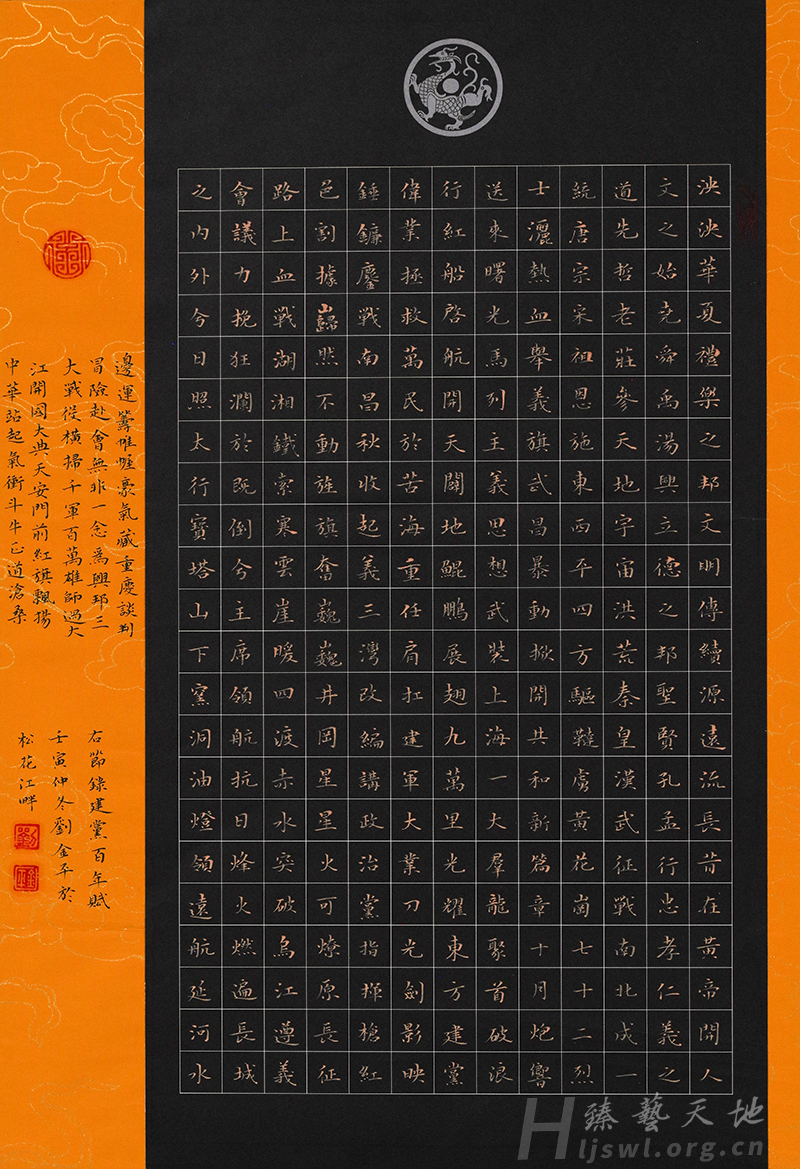 泱泱華夏禮樂之邦文明傳續源遠流長昔在黃帝開人
文之始堯舜禹湯興立德之邦聖賢孔孟行忠孝仁義之
道先哲老莊參天地宇宙洪荒秦皇漢武征戰南北成一
統唐宗宋祖恩施東西平四方驅韃虜黃花崗七十二烈
士灑熱血舉義旗武昌暴動掀開共和新篇章十月炮響
送來曙光馬列主義思想武裝上海一大羣龍聚首破浪
行紅船啓航開天闢地鯤鵬展翅九萬里光耀東方建黨
偉業拯救萬民於苦海重任肩扛建軍大業刀光劍影映
錘鐮鏖戰南昌秋收起義三灣改編講政治黨指揮槍紅
邑割據巋然不動旌旗奮巍巍井岡星星火可燎原長征
路上血戰湖湘鐵索寒雲崖暖四渡赤水突破烏江遵義
會議力挽狂瀾於既倒兮主席領航抗日烽火燃遍長城
之內外兮日照太行寶塔山下窯洞油燈領遠航延河水
邊運籌帷幄豪氣藏重慶談判
冒險赴會無非一念爲興邦三
大戰役橫掃千軍百萬雄師過大
江開國大典天安門前紅旗飄揚
中華站起氣衝斗牛正道滄桑
右節錄建黨百年賦
壬寅仲冬劉金平於
松花江畔
臻藝天地
Hljswl.org.cn